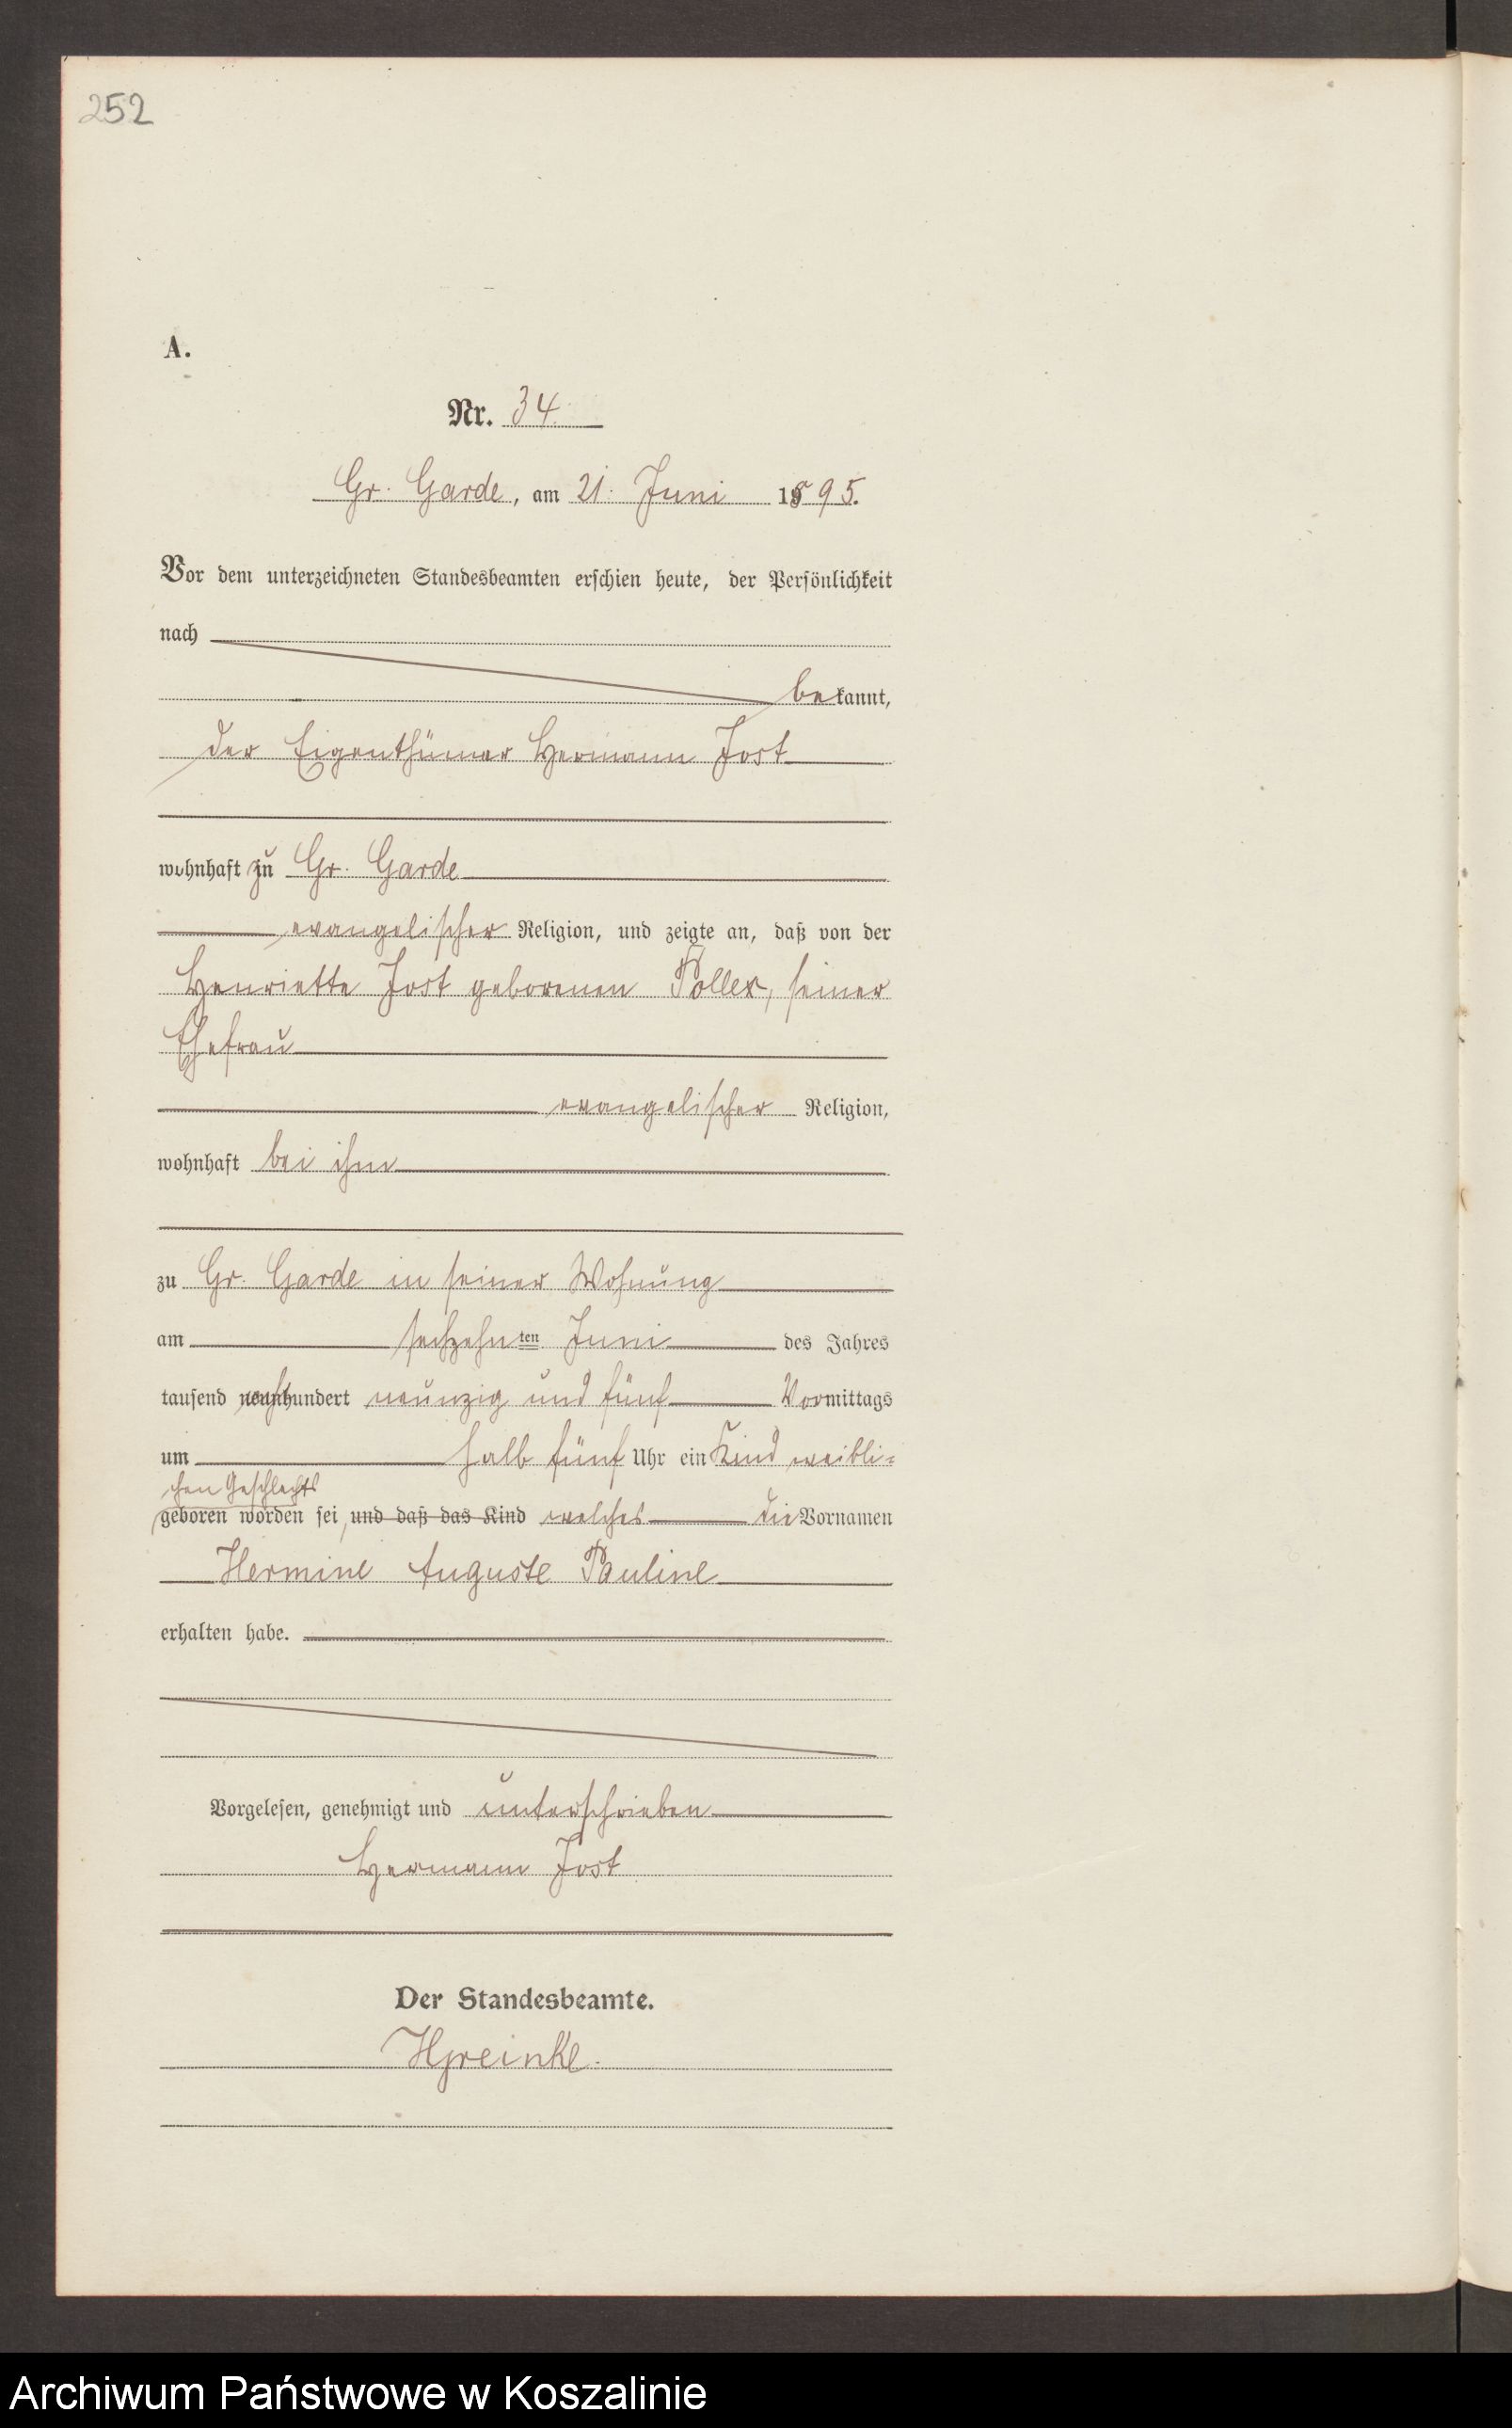 252
A.
Nr. 34.
Gr. Garde, am 21. Juni 1895.
Vor dem unterzeichneten Standesbeamten erschien heute, der Persönlichkeit
nach
bekannt,
der Eigenthümer Hermann Jost
wohnhaft zu Gr. Garde
evangelischer Religion, und zeigte an, daß von der
Henriette Jost geborenen Poller, seiner
Ehefrau
evangelischer Religion,
wohnhaft bei ihm
zu Gr. Garde in seiner Wohnung
am sechzehnten Juni des Jahres
tausend achthundert neunzig und fünf Vormittags
um halb fünf Uhr ein Kind weibli=
chen Geschlechts
geboren worden sei, und daß das Kind welches die Vornamen
Hermine Auguste Pauline
erhalten habe.
Vorgelesen, genehmigt und unterschrieben
Hermann Jost
Der Standesbeamte.
Archiwum Państwowe w Koszalinie